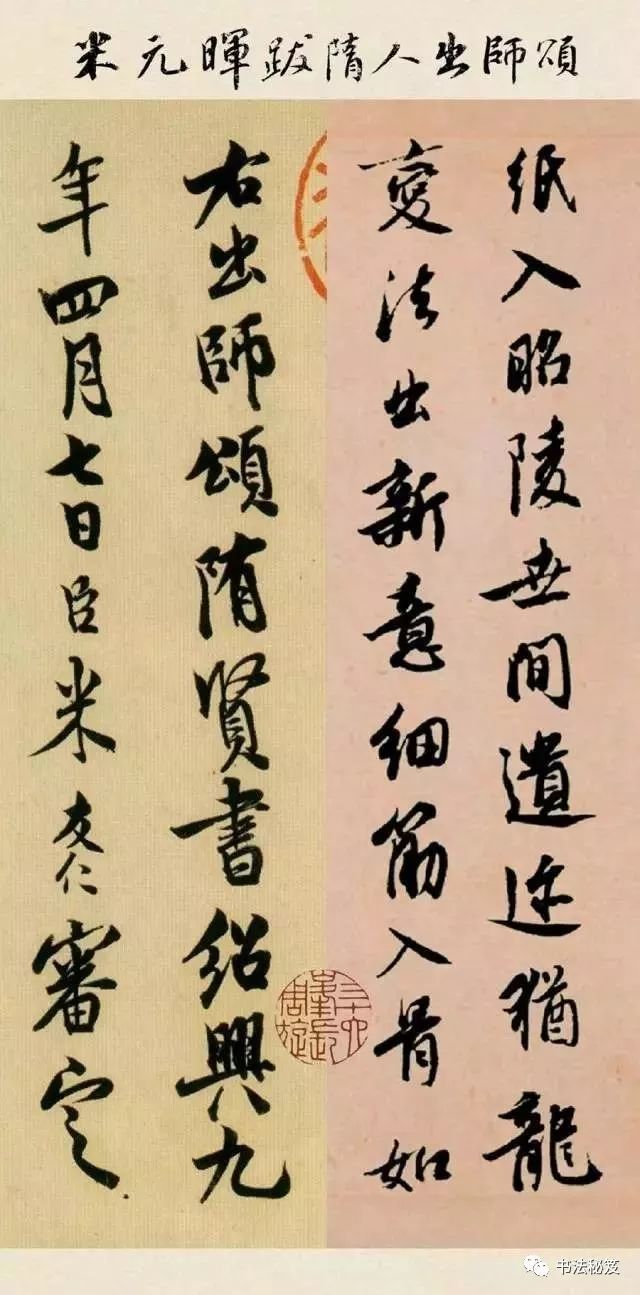 米元暉跋隋人出師頌
紙入昭陵世間遺迹猶龍
變法出新意細筋入骨如
右出師頌隋賢書紹興九
年四月七日臣米友仁審定
书法秘笈